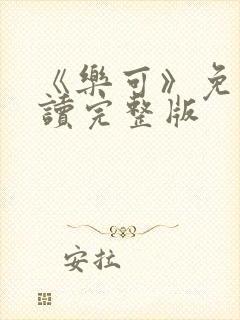 《樂可》免
讀完整版
安拉